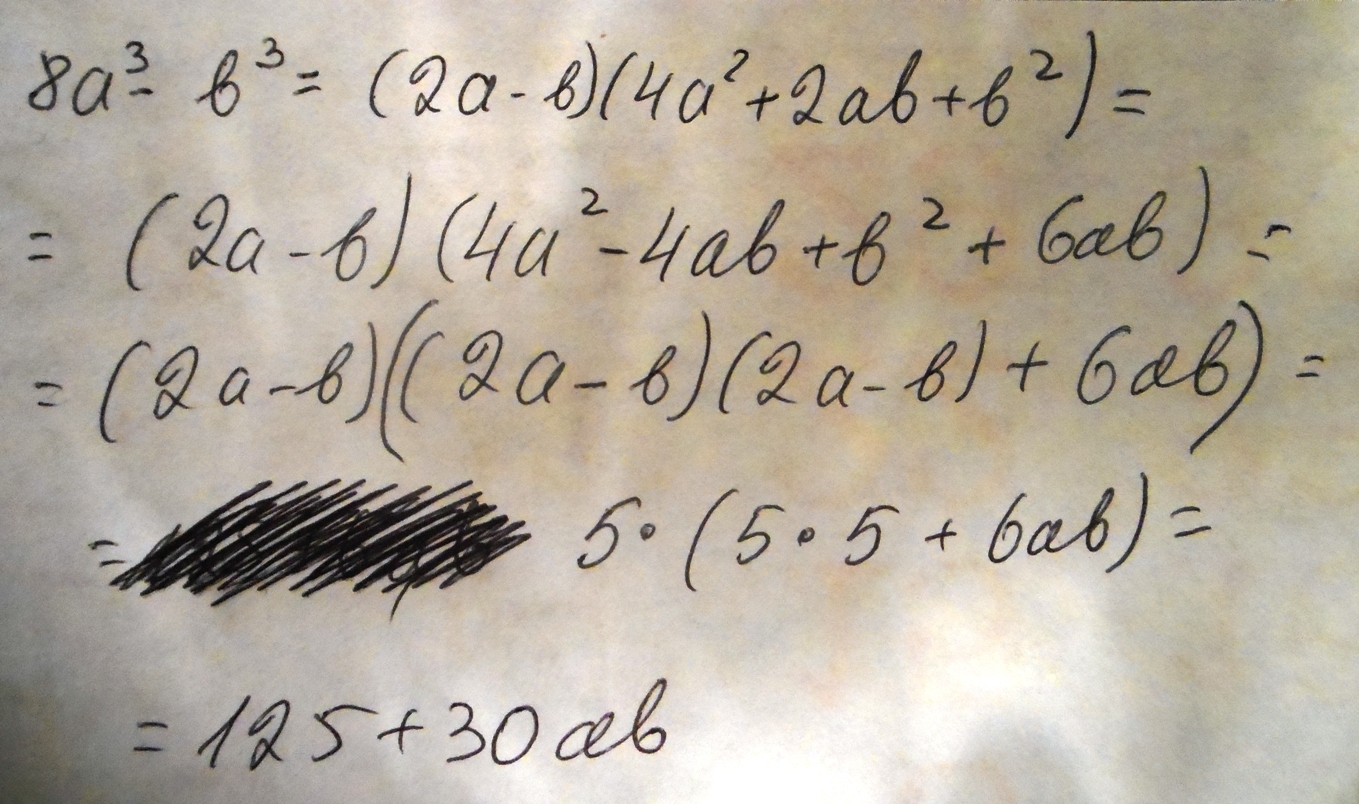 8a³ - b³ = (2a - b)(4a² + 2ab + b²) =
= (2a - b)(4a² - 4ab + b² + 6ab) =
= (2a - b)((2a - b)(2a - b) + 6ab) =
= 5 • (5 • 5 + 6ab) =
= 125 + 30ab